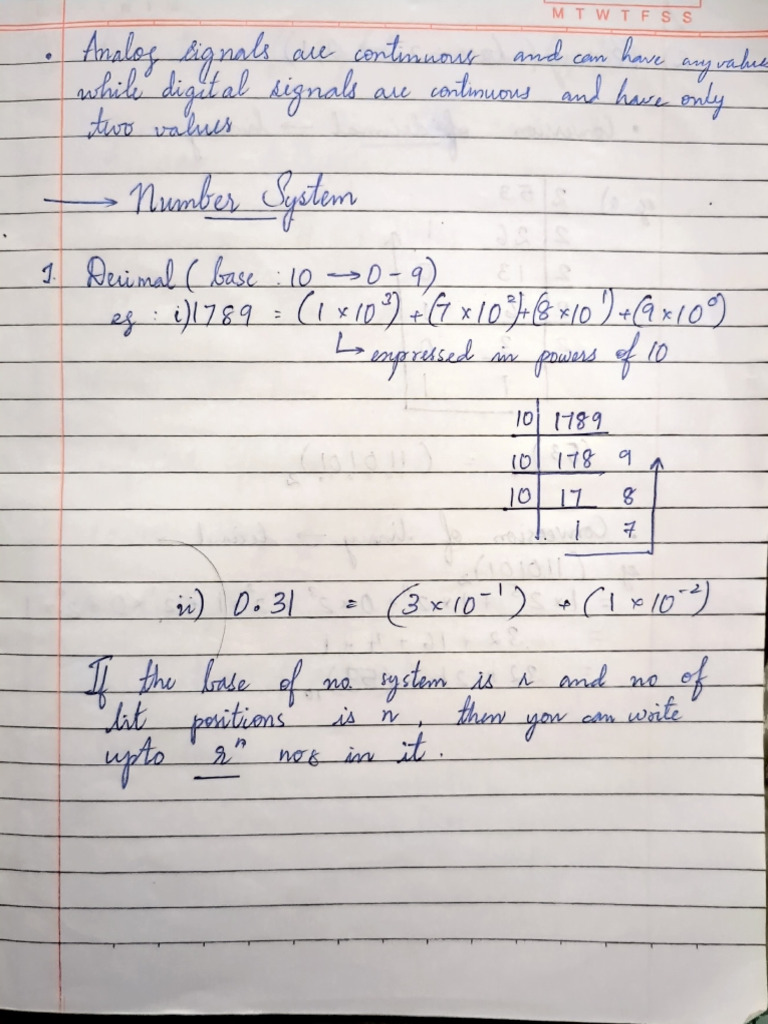 M T W T F S S
• Analog signals are continuous and can have any values
while digital signals are continuous and have only
two values
→ Number System
1. Decimal ( base : 10 → 0 - 9)
eg : i) 1789 = (1 × 10³) + (7 × 10²) + (8 × 10¹) + (9 × 10⁰)
↳ expressed in powers of 10
10 | 1789
10 | 178 9
10 | 17 8
1 7
ii) 0.31 = (3 × 10⁻¹) + (1 × 10⁻²)
If the base of no. system is r and no of
bit positions is n, then you can write
upto rⁿ nos in it.